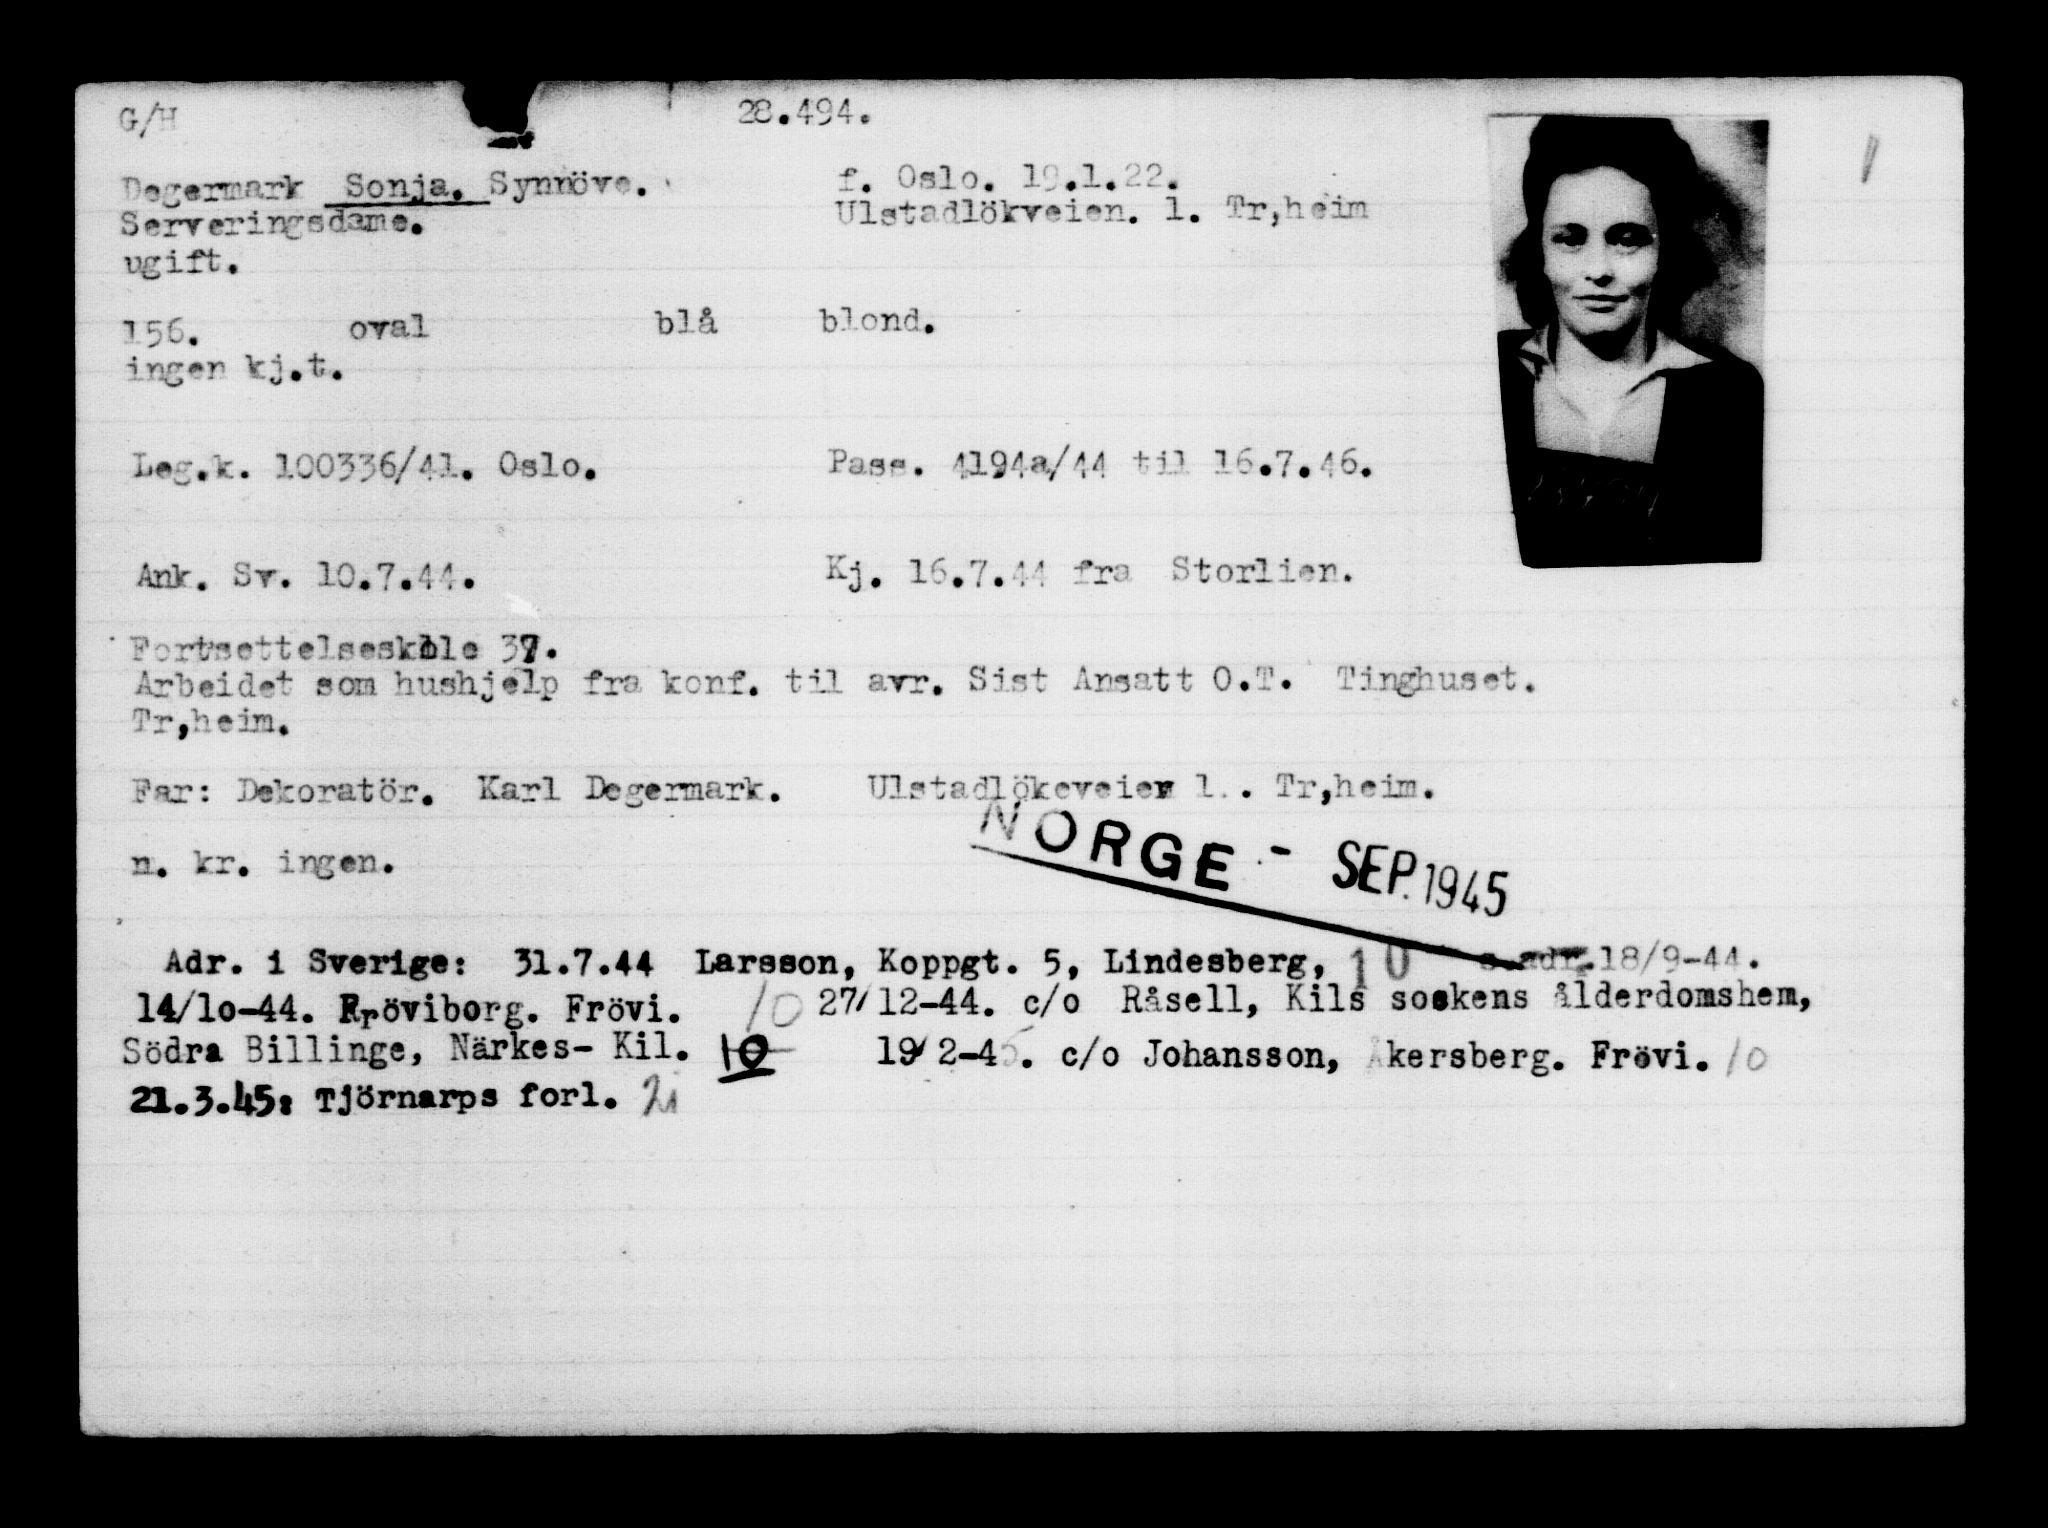 G/H 28.494.
1
Degermark Sonja. Synnöve. f. Oslo. 19.1.22.
Serveringsdame. Ulstadlökveien. 1. Tr,heim
ugift.
156. oval blå blond.
ingen kj.t.
Leg.k. 100336/41. Oslo. Pass. 4194a/44 til 16.7.46.
Ank. Sv. 10.7.44. Kj. 16.7.44 fra Storlien.
Fortsettelseskole 37.
Arbeidet som hushjelp fra konf. til avr. Sist Ansatt O.T. Tinghuset.
Tr,heim.
Far: Dekoratör. Karl Degermark. Ulstadlökeveien 1. . Tr,heim.
NORGE - SEP. 1945
n. kr. ingen.
Adr. i Sverige: 31.7.44 Larsson, Koppgt. 5, Lindesberg, 10 s.adr.18/9-44.
14/lo-44. Fröviborg. Frövi. 10 27/12-44. c/o Råsell, Kils soekens ålderdomshem,
Södra Billinge, Närkes- Kil. 10 19/2-45. c/o Johansson, Åkersberg. Frövi. 10
21.3.45: Tjörnarps forl.